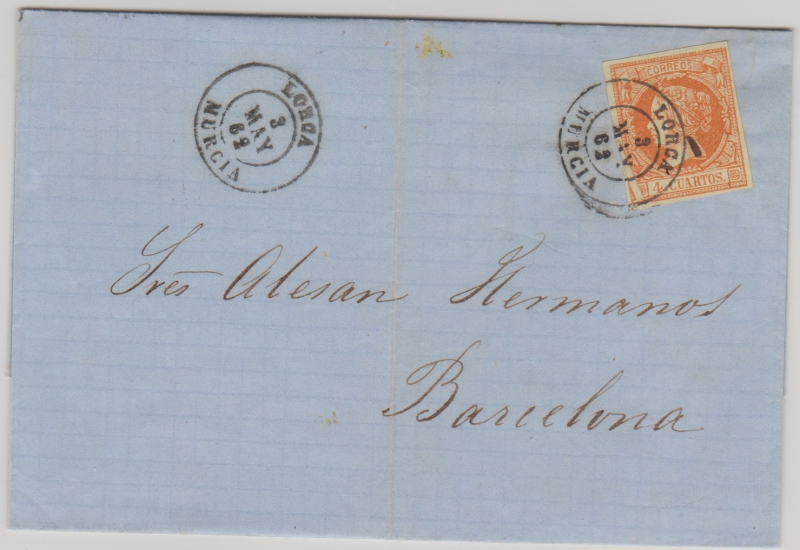 LORCA
3
MAY
62
MURCIA
CORREOS
LORCA
3
MAY.
62
MURCIA
4 CUARTOS.
Sres Alesan Hermanos
Barcelona